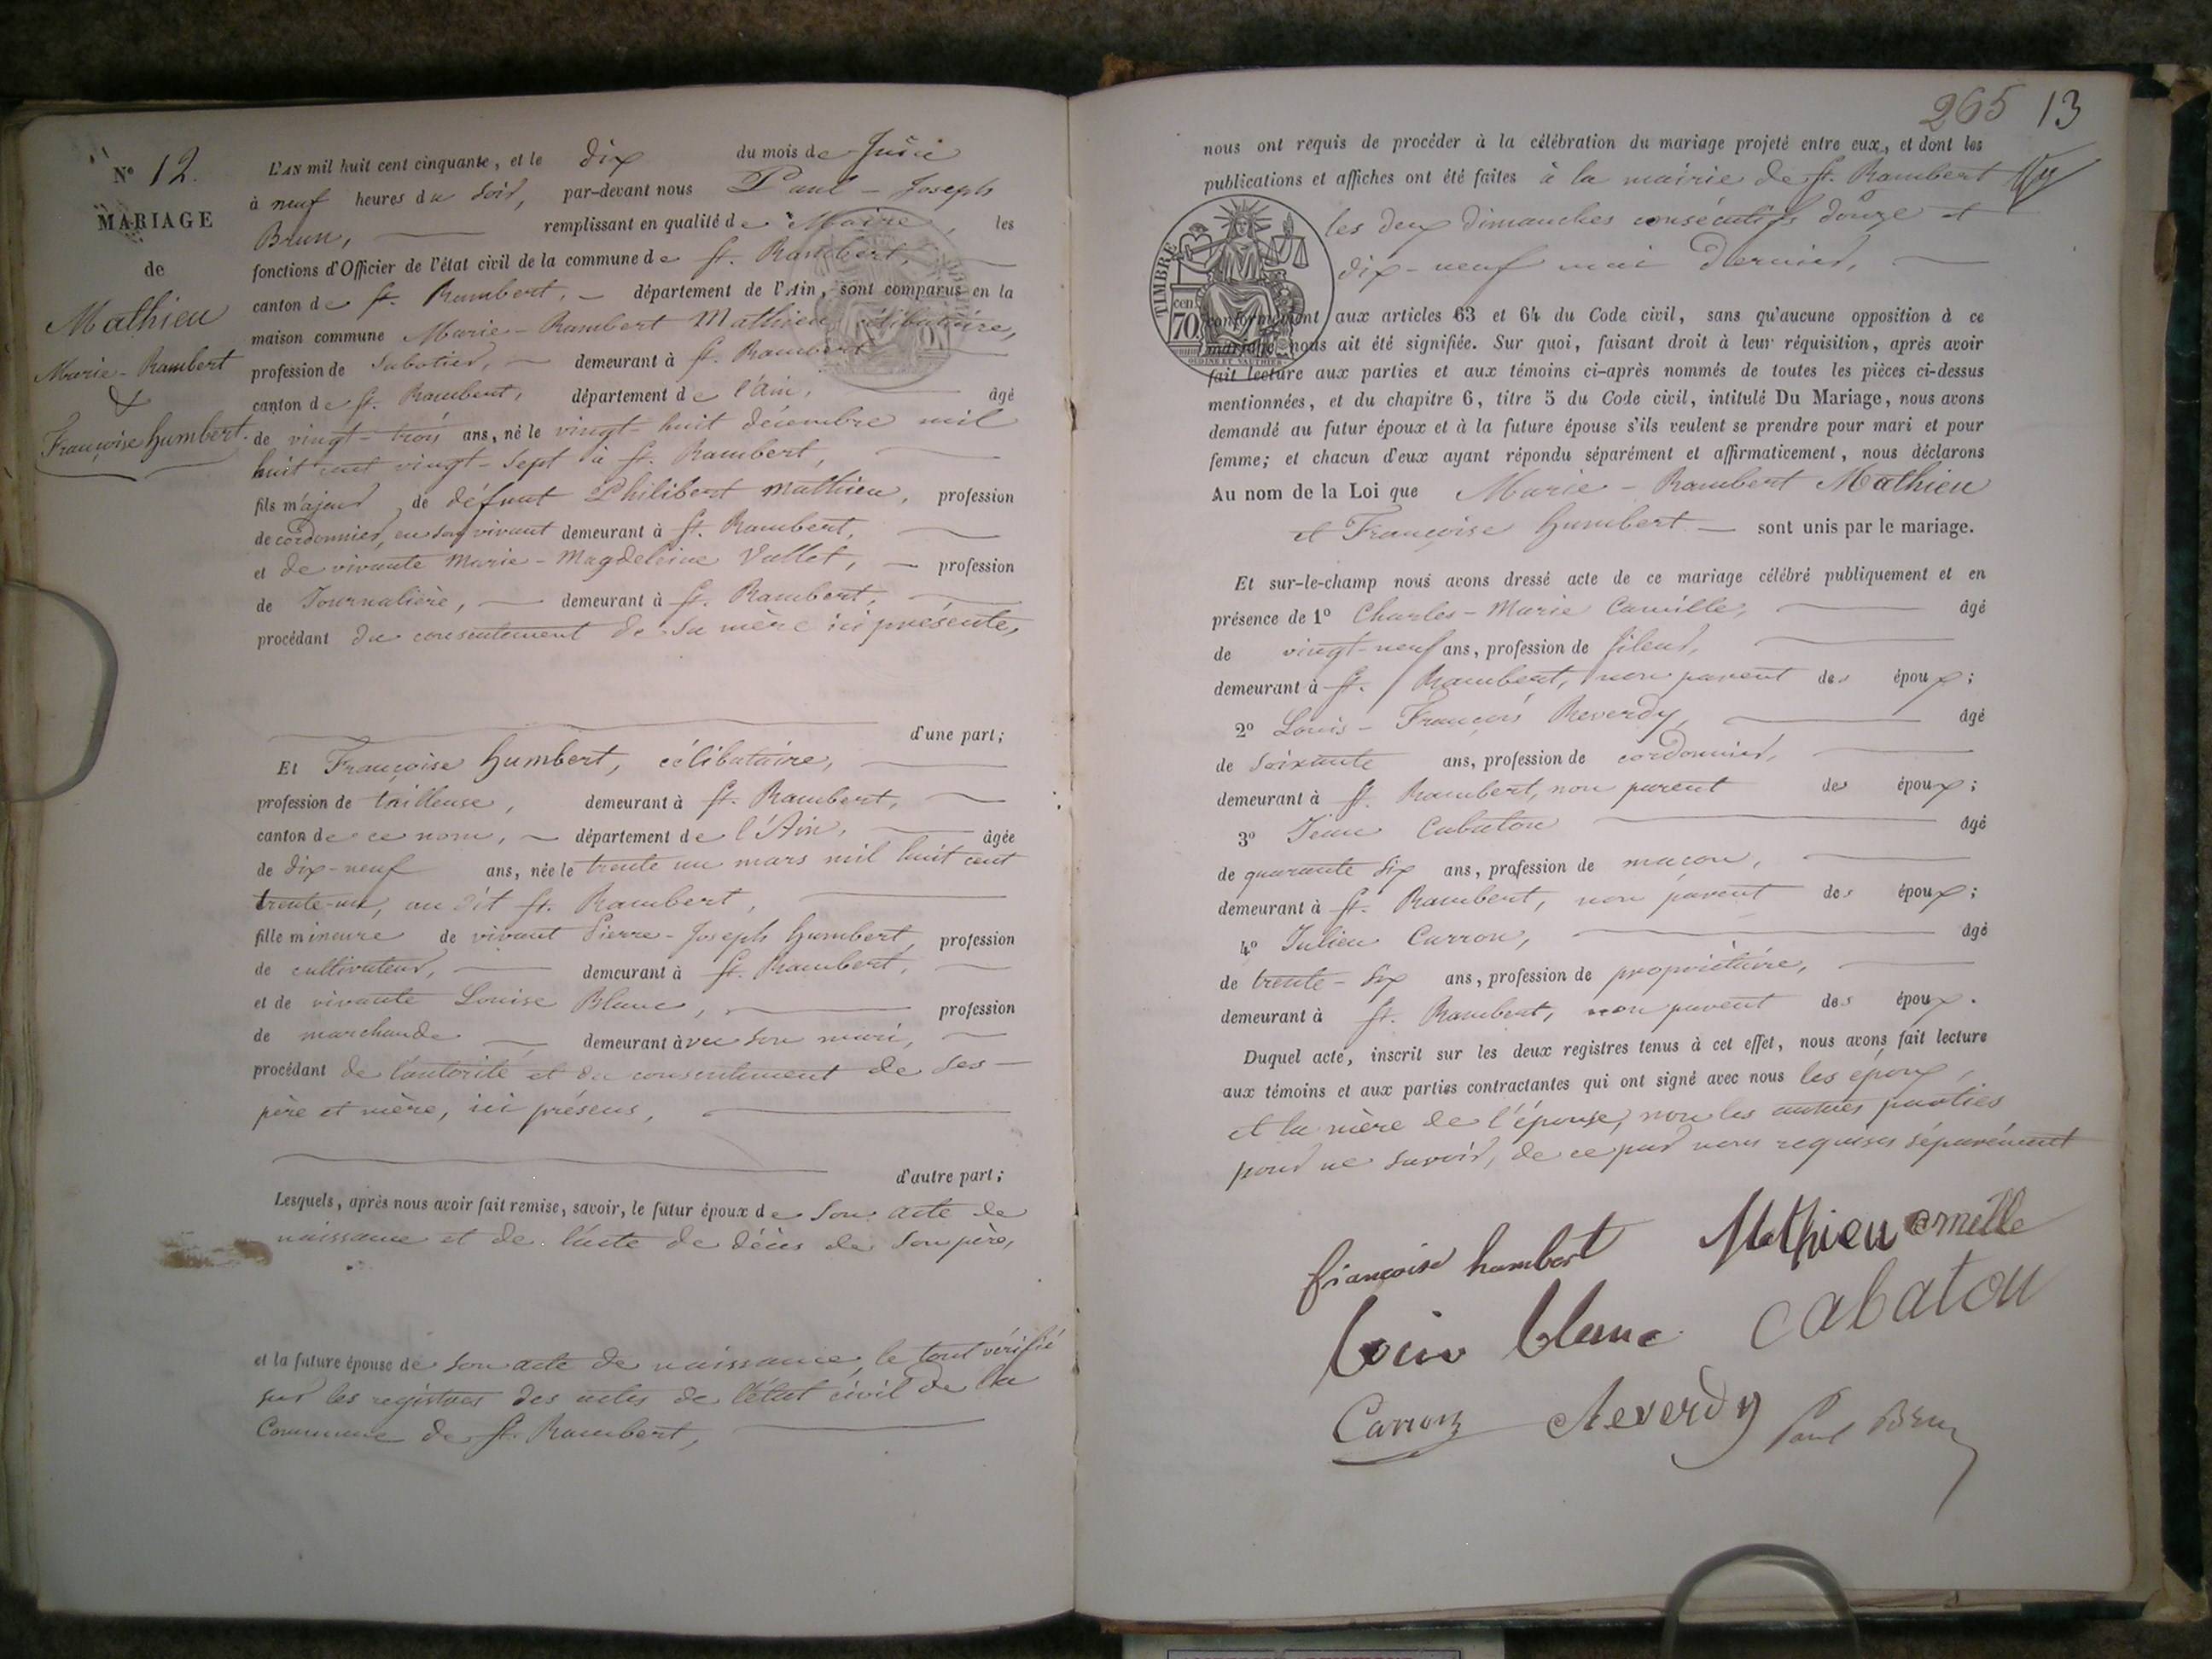 N° 12.
MARIAGE
de
Mathieu
Marie - Rambert
&
Françoise humbert.
L'AN mil huit cent cinquante, et le dix du mois de Juin
à neuf heures du soir, par-devant nous Paul - Joseph
Brun, remplissant en qualité de Maire, les
fonctions d'Officier de l'état civil de la commune de St. Rambert,
canton de St. Rambert, département de l'Ain, sont comparus en la
maison commune Marie - Rambert Mathieu célibataire,
profession de Sabotier, demeurant à St. Rambert
canton de St. Rambert, département de l'Ain, âgé
de vingt-trois ans, né le vingt-huit décembre mil
huit cent vingt-sept à St. Rambert,
fils majeur de défunt Philibert Mathieu, profession
de cordonnier, en son vivant demeurant à St. Rambert,
et de vivante Marie - Magdeleine Vallet, profession
de Journalière, demeurant à St. Rambert,
procédant du consentement de sa mère ici présente,
d'une part;
Et Françoise humbert, célibataire,
profession de tailleuse, demeurant à St. Rambert,
canton de ce nom, département de l'Ain, âgée
de dix-neuf ans, née le trente un mars mil huit cent
trente-un, au dit St. Rambert,
fille mineure de vivant Pierre - Joseph humbert, profession
de cultivateur, demeurant à St. Rambert,
et de vivante Louise Blanc, profession
de marchande demeurant avec son mari,
procédant de l'autorité et du consentement de ses
père et mère, ici présens,
d'autre part;
Lesquels, après nous avoir fait remise, savoir, le futur époux de son acte de
naissance et de l'acte de décès de son père,
et la future épouse de son acte de naissance, le tout vérifié
sur les registres des actes de l'état civil de la
Commune de St. Rambert,
265 13
nous ont requis de procéder à la célébration du mariage projeté entre eux, et dont les
publications et affiches ont été faites à la mairie de St. Rambert
les deux dimanches consécutifs douze et
dix-neuf mai dernier,
TIMBRE
70 cen
OUDINE ET VAUTHIER
conformément aux articles 63 et 64 du Code civil, sans qu'aucune opposition à ce
mariage nous ait été signifiée. Sur quoi, faisant droit à leur réquisition, après avoir
fait lecture aux parties et aux témoins ci-après nommés de toutes les pièces ci-dessus
mentionnées, et du chapitre 6, titre 5 du Code civil, intitulé Du Mariage, nous avons
demandé au futur époux et à la future épouse s'ils veulent se prendre pour mari et pour
femme; et chacun d'eux ayant répondu séparément et affirmativement, nous déclarons
Au nom de la Loi que Marie - Rambert Mathieu
et Françoise humbert sont unis par le mariage.
Et sur-le-champ nous avons dressé acte de ce mariage célébré publiquement et en
présence de 1° Charles - Marie Camille, âgé
de vingt-neuf ans, profession de fileur,
demeurant à St. Rambert, non parent des époux;
2° Louis - François Reverdy, âgé
de soixante ans, profession de cordonnier,
demeurant à St. Rambert, non parent des époux;
3° Jean Cabaton âgé
de quarante six ans, profession de maçon,
demeurant à St. Rambert, non parent des époux;
4° Julien Carron, âgé
de trente-six ans, profession de propriétaire,
demeurant à St. Rambert, non parent des époux.
Duquel acte, inscrit sur les deux registres tenus à cet effet, nous avons fait lecture
aux témoins et aux parties contractantes qui ont signé avec nous les époux,
et la mère de l'épouse, non les autres parties
pour ne savoir, de ce par nous requises séparément
françoise humbert Mathieu Camille
blanc Cabaton
Carron Reverdy Paul Brun